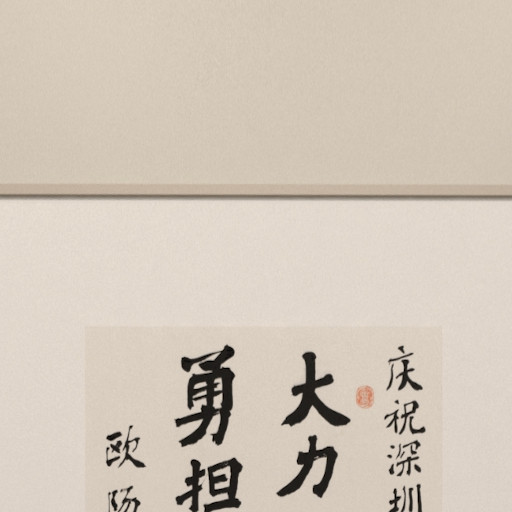 庆祝深圳
大力
勇担
欧阳